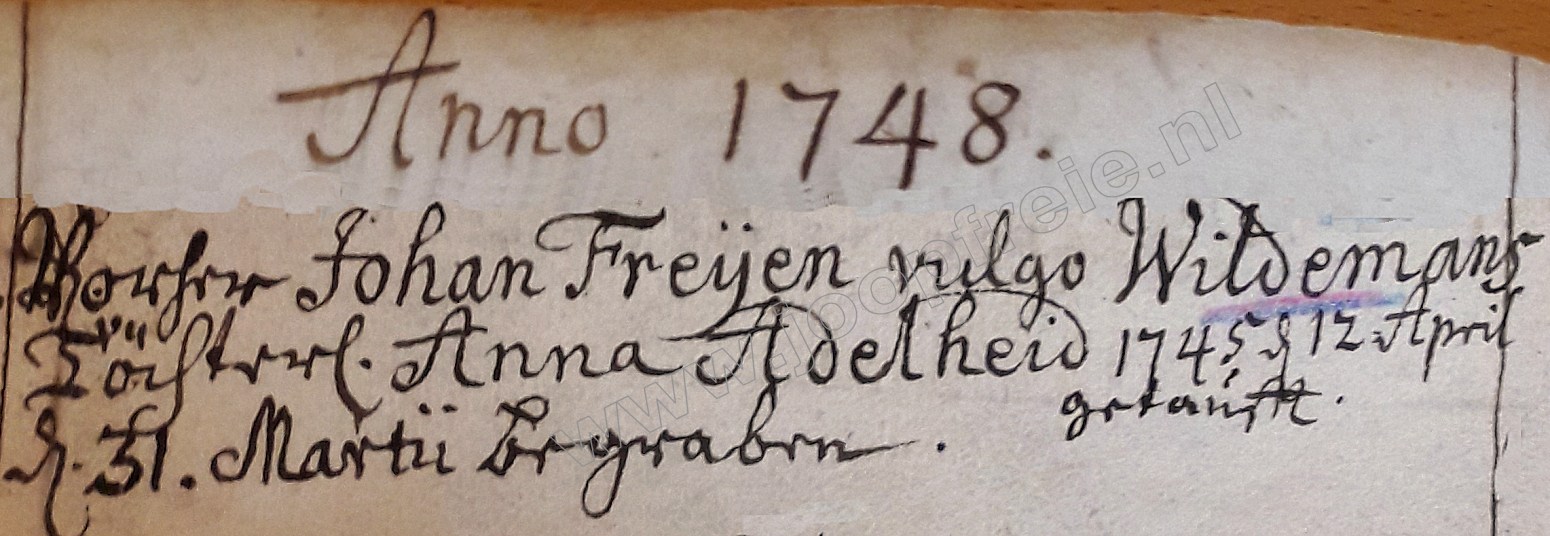 Anno 1748.
Johan Freÿen vulgo Wildemans
Töchterl. Anna Adelheid 1745 d 12 April
getaufft.
d. 31. Martii begraben.
www.poopfreie.nl